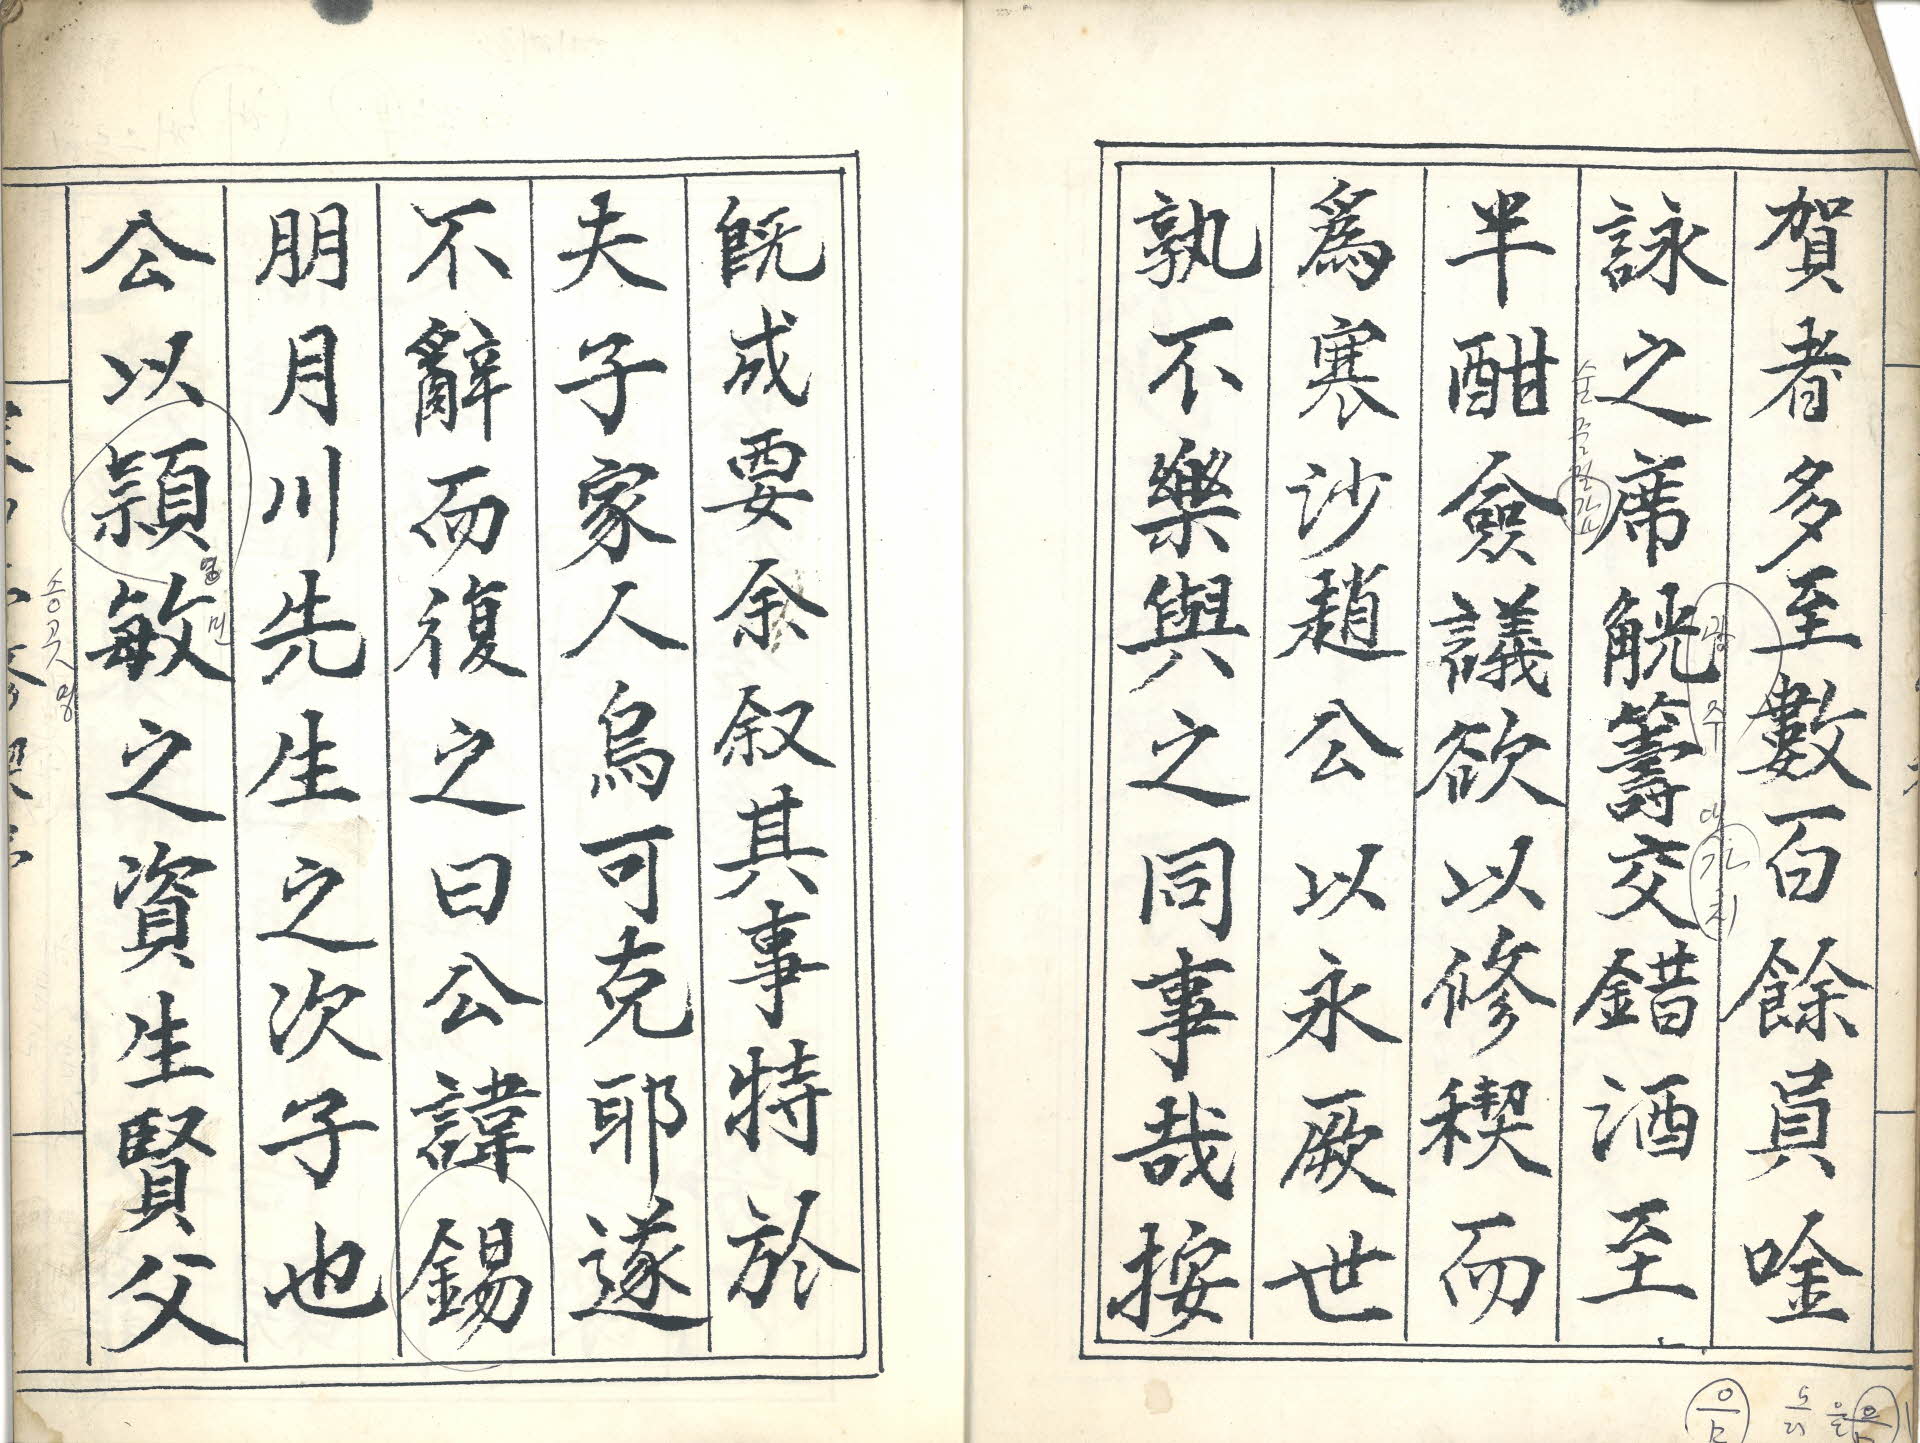 賀者多至數百餘員唫
詠之席觥籌交錯酒至
半酣僉議欲以修稧而
爲寒沙趙公以永厥世
孰不樂與之同事哉按
旣成要余叙其事特於
夫子家人烏可克耶遂
不辭而復之曰公諱錫
朋月川先生之次子也
公以穎敏之資生賢父
영민